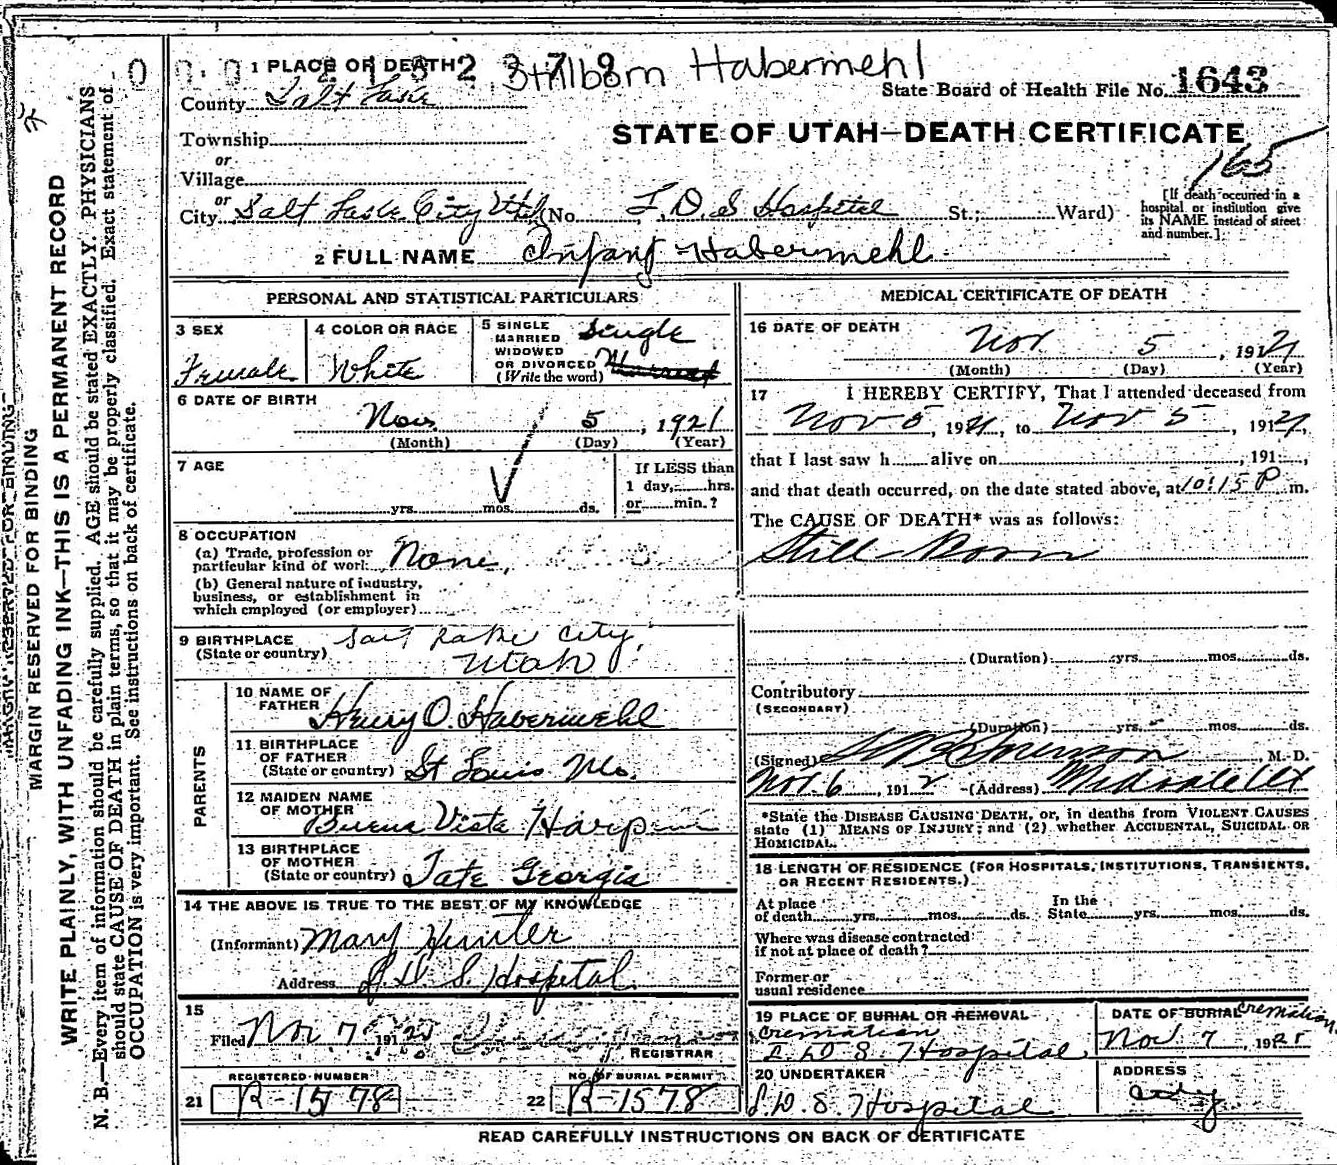 0 0 0 2 1 3 2 3 7 9 Stillborn Habermehl
1 PLACE OF DEATH
County Salt Lake
State Board of Health File No. 1643
Township
STATE OF UTAH—DEATH CERTIFICATE
165
or
Village
or
City Salt Lake City Utah (No. L. D. S Hospital St.; Ward)
[If death occurred in a hospital or institution give its NAME instead of street and number.]
2 FULL NAME Infant Habermehl
MARGIN RESERVED FOR BINDING
WRITE PLAINLY, WITH UNFADING INK—THIS IS A PERMANENT RECORD
N. B.—Every item of information should be carefully supplied. AGE should be stated EXACTLY. PHYSICIANS
should state CAUSE OF DEATH in plain terms, so that it may be properly classified. Exact statement of
OCCUPATION is very important. See instructions on back of certificate.
PERSONAL AND STATISTICAL PARTICULARS
3 SEX
Female
4 COLOR OR RACE
White
5 SINGLE
MARRIED
WIDOWED
OR DIVORCED
(Write the word)
Single
6 DATE OF BIRTH
Nov 5, 1921
(Month) (Day) (Year)
7 AGE
yrs. mos. ds.
If LESS than
1 day, hrs.
or min.?
8 OCCUPATION
(a) Trade, profession or
particular kind of work None.
(b) General nature of industry,
business, or establishment in
which employed (or employer)
9 BIRTHPLACE
(State or country)
Salt Lake City,
Utah
PARENTS
10 NAME OF
FATHER Henry O. Habermehl
11 BIRTHPLACE
OF FATHER
(State or country) St Louis Mo.
12 MAIDEN NAME
OF MOTHER Buena Vista
13 BIRTHPLACE
OF MOTHER
(State or country) Tate Georgia
14 THE ABOVE IS TRUE TO THE BEST OF MY KNOWLEDGE
(Informant) Mary Hunter
Address L. D. S. Hospital.
15
Filed Nov 7 191
REGISTRAR
REGISTERED NUMBER
21 R-1578
NO. OF BURIAL PERMIT
22 R-1578
MEDICAL CERTIFICATE OF DEATH
16 DATE OF DEATH
Nov 5, 1921
(Month) (Day) (Year)
17 I HEREBY CERTIFY, That I attended deceased from
Nov 5, 1921, to Nov 5, 1921,
that I last saw h alive on , 191 ,
and that death occurred, on the date stated above, at 10:15 P m.
The CAUSE OF DEATH* was as follows:
Still Born
(Duration) yrs. mos. ds.
Contributory
(SECONDARY)
(Duration) yrs. mos. ds.
(Signed) M. D.
Nov. 6, 1912 (Address) Midvale Ut
*State the DISEASE CAUSING DEATH, or, in deaths from VIOLENT CAUSES
state (1) MEANS OF INJURY; and (2) whether ACCIDENTAL, SUICIDAL OR
HOMICIDAL.
18 LENGTH OF RESIDENCE (FOR HOSPITALS, INSTITUTIONS, TRANSIENTS,
OR RECENT RESIDENTS.)
At place
of death yrs. mos. ds.
In the
State yrs. mos. ds.
Where was disease contracted
if not at place of death?
Former or
usual residence
19 PLACE OF BURIAL OR REMOVAL
Cremation
L. D. S. Hospital
DATE OF BURIAL Cremation
Nov. 7, 192
20 UNDERTAKER
L. D. S Hospital
ADDRESS
City
READ CAREFULLY INSTRUCTIONS ON BACK OF CERTIFICATE